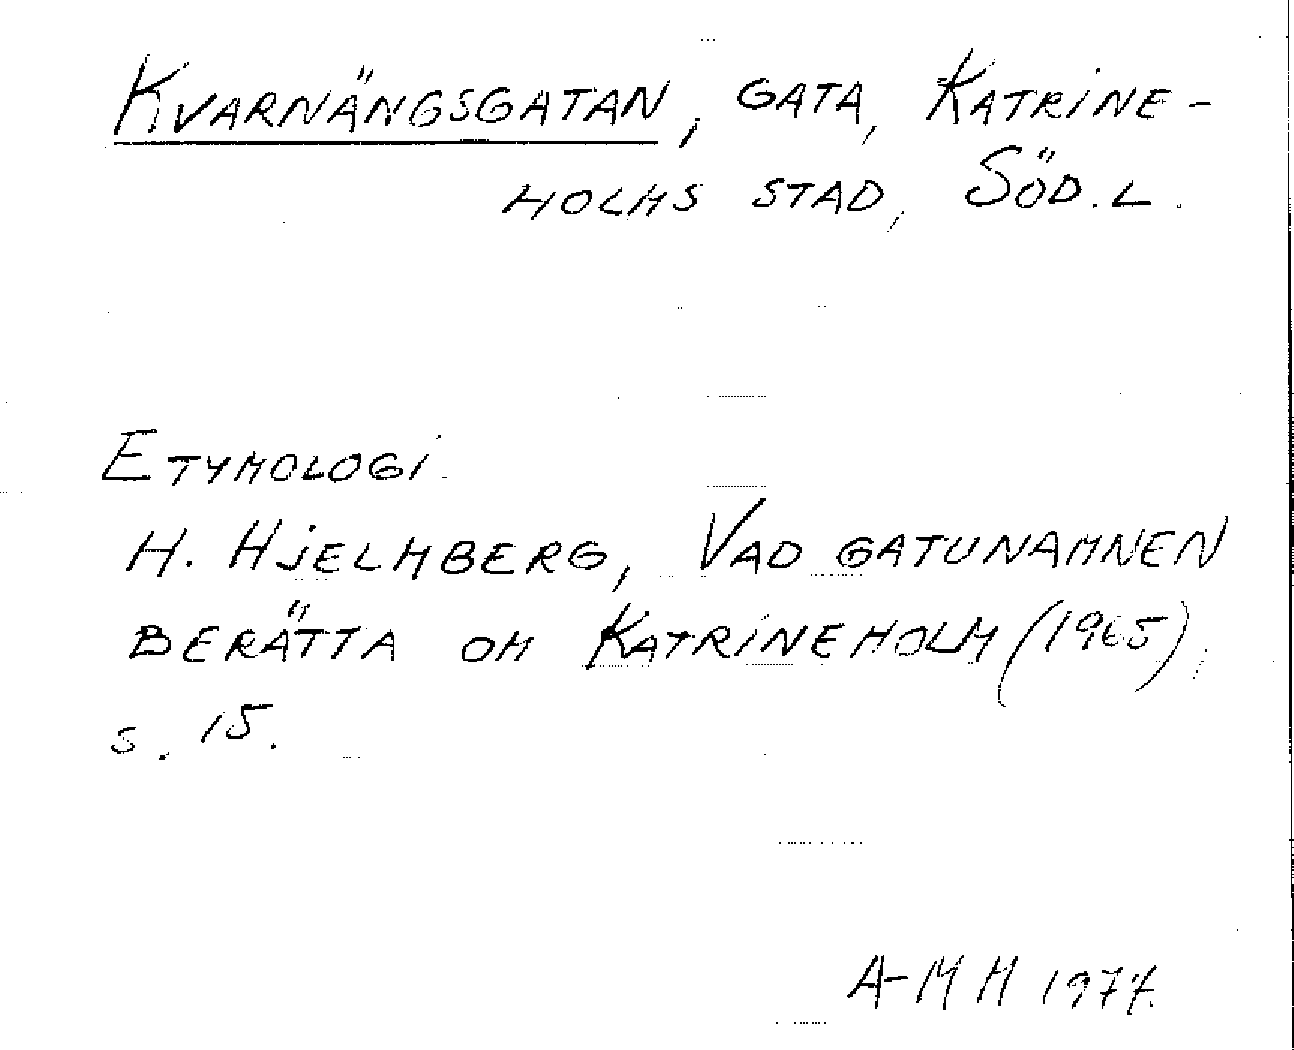 KVARNÄNGSGATAN, GATA, KATRINE-
HOLMS STAD, SÖD.L.
ETYMOLOGI.
H. HJELMBERG, VAD GATUNAMNEN
BERÄTTA OM KATRINEHOLM (1965),
s. 15.
A-MH 1977.